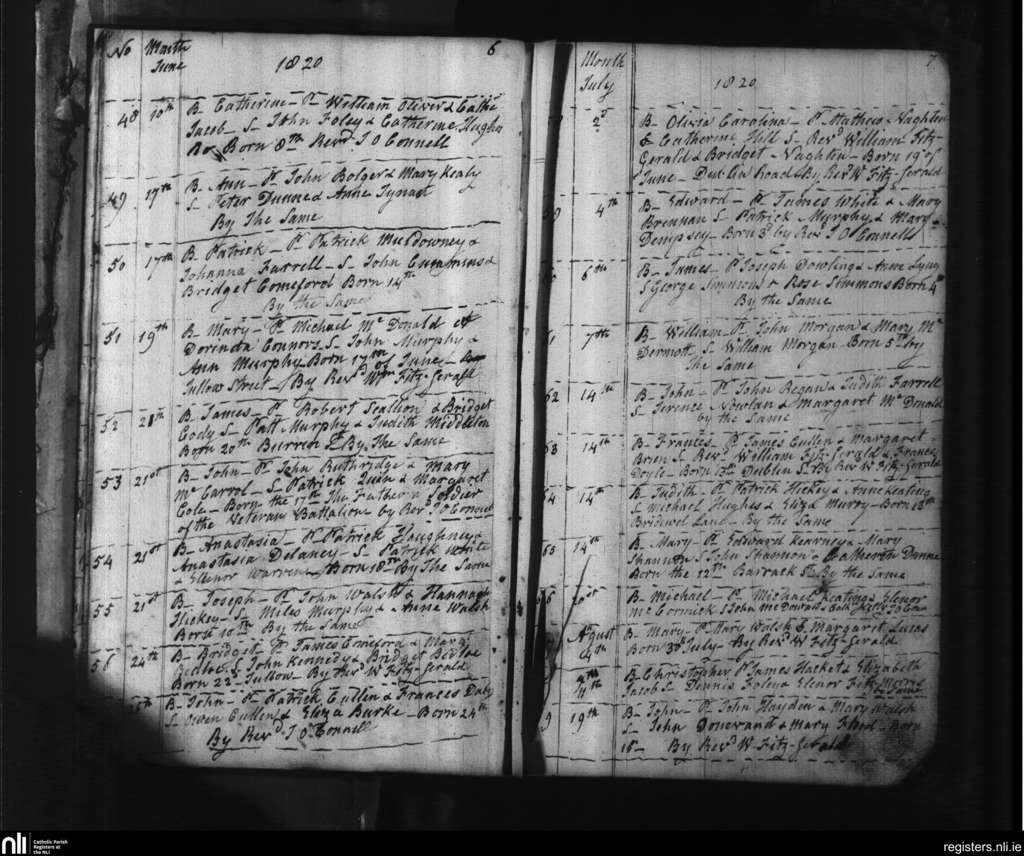 No
Month
June
1820
6
48
10th
B- Catherine- Ps William Oliver & Cathe
Jacob- S- John Foley & Catherine Hughes
Born 8th Revd J O Connell
49
17th
B- Ann- Ps John Bolger & Mary Kealy
S- Peter Dunne & Anne Tynan
By The Same
50
17th
B Patrick- Ps Patrick Muldowney &
Johanna Farrell- S- John Cummins &
Bridget Comeford Born 14th
By the Same
51
19th
B- Mary- Ps Michael Mc Donald &
Dorinda Connors S- John Murphy &
Ann Murphy Born 17th of June-
Tullow Street- By Revd Wm Fitz-Gerald
52
21st
B- James- Ps Robert Scallion & Bridget
Cody S- Patt Murphy & Judith Middleton
Born 20th Burren St By The Same
53
21st
B- John- Ps John Ruthridge & Mary
Mc Carrol- S- Patrick Quin & Margaret
Cole- Born the 17th The Father a Soldier
of the Veteran Battalion by Revd J O Connell
54
21st
B- Anastasia- Ps Patrick Haughney &
Anastasia Delaney- S- Patrick White
& Ellenor Warren- Born 18th By The Same
55
21st
B- Joseph- Ps John Walsh & Hannagh
Hickey- S- Miles Murphy & Anne Walsh
Born 10th By the Same
56
24th
B- Bridget Ps James Comeford & Margt
S- John Kennedy & Bridget
Born 22d Tullow- By Revd W Fitz-Gerald
B- John- Ps Patrick Cullen & Frances Daly
S- Owen Cullen & Eliza Burke- Born 24th
By Revd J O Connell
Month
July
1820
7
2d
B- Olivia Carolina- Ps Mathew Naghten
& Catherine Hill S- Revd William Fitz-
Gerald & Bridget Naghten- Born 19th of
June- Dublin Road By Revd W Fitz-Gerald
4th
B- Edward- Ps James White & Mary
Brennan S- Patrick Murphy & Mary
Dempsey- Born 3d by Revd J O Connell
6th
B- James- Ps Joseph Dowling & Anne Lyng
S George Simmons & Rose Simmons Born 4th
By the Same
7th
B- William- Ps John Morgan & Mary Mc
Dermott- S- William Morgan Born 5th by
The Same
62
14th
B- John- Ps John Regan & Judith Farrell
S- Terence Nowlan & Margaret Mc Donald
by the Same
63
14th
B- Frances- Ps James Cullen & Margaret
Brien S- Revd William Fitz-Gerald & Frances
Doyle- Born 13th Dublin St By Revd W Fitz-Gerald
64
14th
B- Judith- Ps Patrick Hickey & Anne Keating
S- Michael Hughes & Eliza Murry- Born 13th
Bridwel Lane- By the Same
65
14th
B- Mary- Ps Edward Kearney & Mary
Shannon S John Shannon & Catherin Dunne
Born the 12th Barrack St By the Same
B- Michael- Ps Michael Keating & Elenor
Mc Cormick S John McDonald & Cath Kelly
August
4th
B- Mary- Ps Mary Walsh & Margaret Lucas
Born 30 July- By Revd W Fitz-Gerald
4th
B- Christopher Ps James Hacket & Elizabeth
Jacob S- Dennis Foley & Elenor Fitz-Morris
by Same
19th
B- John- Ps John Hayden & Mary Walsh
S- John Donevand & Mary Flood- Born
18- By Revd W Fitz-Gerald
nli
Catholic Parish
Registers at
the NLI
registers.nli.ie